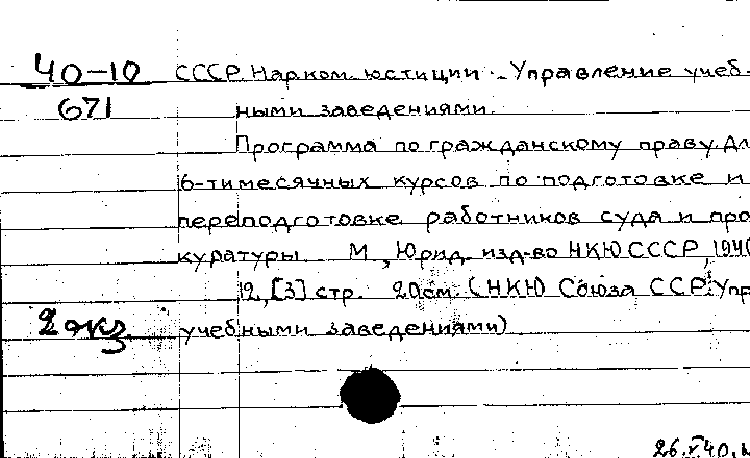 40-10 СССР. Нарком. юстиции. Управление учеб-
671 ными заведениями.
Программа по гражданскому праву. Дл
6-тимесячных курсов по подготовке и
переподготовке работников суда и про
куратуры. М., Юрид. изд-во НКЮ СССР, 1940
12, [3] стр. 20 см. (НКЮ Союза ССР. Упр
2 экз. учебными заведениями).
26.X 40.